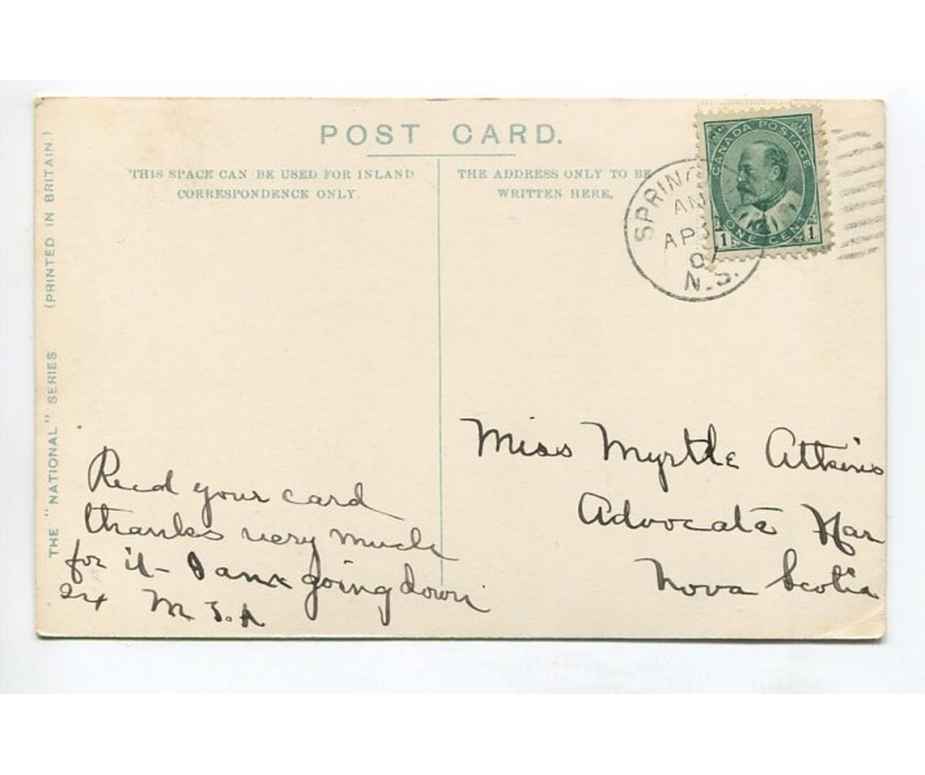 POST CARD.
THIS SPACE CAN BE USED FOR INLAND
CORRESPONDENCE ONLY.
THE ADDRESS ONLY TO BE
WRITTEN HERE,
CANADA POSTAGE
ONE CENT
1 1
SPRING
AP
N.S.
THE "NATIONAL" SERIES (PRINTED IN BRITAIN.)
Recd your card
thanks very much
for it - I am going down
M
Miss Myrtle Atkins
Advocate Har
Nova Scotia